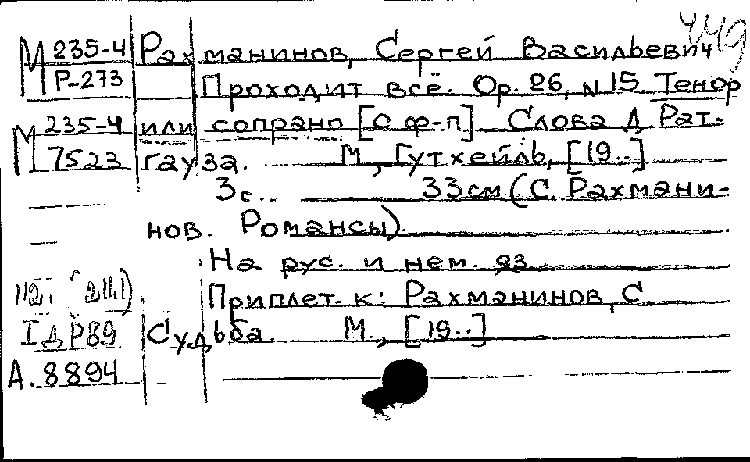 449
М 235-4 Рахманинов, Сергей Васильевич
Р-273 Проходит всё. Ор. 26, N 15 Тенор
М 235-4 или сопрано [с ф-п]. Слова Д. Рат-
7523 гауза. М., Гутхейль, [19..]
3с. 33см (С. Рахмани-
нов. Романсы).
На рус. и нем. яз.
Приплет. к: Рахманинов, С
I Д Р89 Судьба. М., [19..]
А. 8894